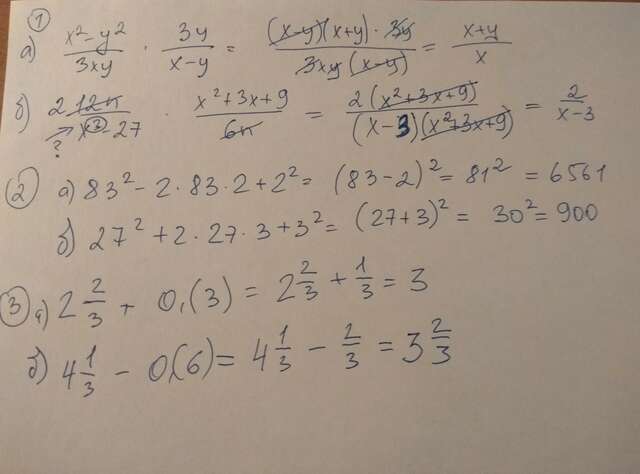 ① а) (x²-y²)/(3xy) · 3y/(x-y) = ((x-y)(x+y)·3y)/(3xy(x-y)) = (x+y)/x
б) 2 12n/(x³-27) · (x²+3x+9)/(6n) = (2(x²+3x+9))/((x-3)(x²+3x+9)) = 2/(x-3)
?
② а) 83² - 2·83·2+2² = (83-2)² = 81² = 6561
б) 27² + 2·27·3+3² = (27+3)² = 30² = 900
③ а) 2 2/3 + 0,(3) = 2 2/3 + 1/3 = 3
б) 4 1/3 - 0,(6) = 4 1/3 - 2/3 = 3 2/3